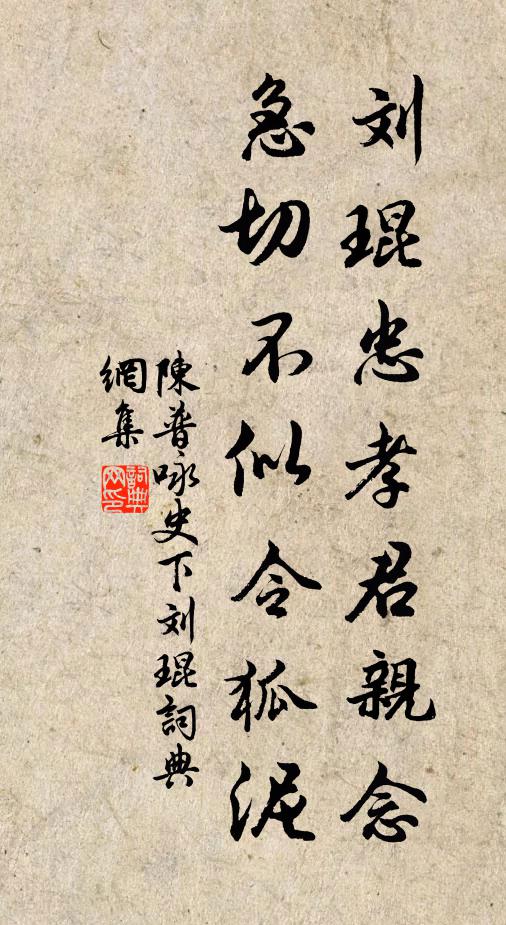 刘琨忠孝君親念
急切不似令狐泥
陳普咏史下刘琨詞典
網集
詞典
网印